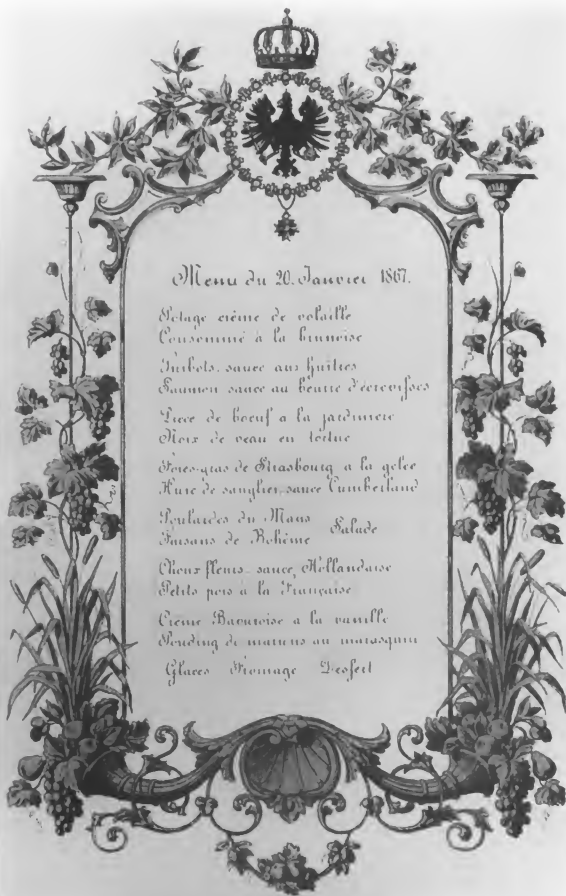 Menu du 20. Janvier 1867.
Potage crème de volaille
Consommé à la brunoise
Turbots, sauce aux huîtres
Saumon sauce au beurre d'écrevisses
Pièce de boeuf a la jardinière
Noix de veau en tortue
Foies-gras de Strasbourg a la gelée
Hure de sanglier, sauce Cumberland
Poulardes du Mans
Faisans de Bohême Salade
Choux fleurs, sauce Hollandaise
Petits pois à la Française
Crème Bavaroise a la vanille
Pouding de marrons au marasquin
Glaces Fromage Dessert